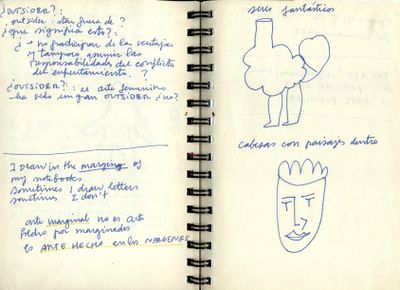 ¿OUTSIDER?:
outside: estar fuera de?
¿que significa esto?:
¿→ no participar de las ventajas
y tampoco asumir las
responsabilidades del conflicto
del enfrentamiento. ?
¿OUTSIDER?: el arte femenino
ha sido un gran OUTSIDER ¿no?
I draw in the margins of
my notebooks
Sometimes I draw letters
sometimes I don't
arte marginal no es arte
hecho por marginados
es ARTE HECHO en los MARGENES
seres fantásticos
cabezas con paisajes dentro